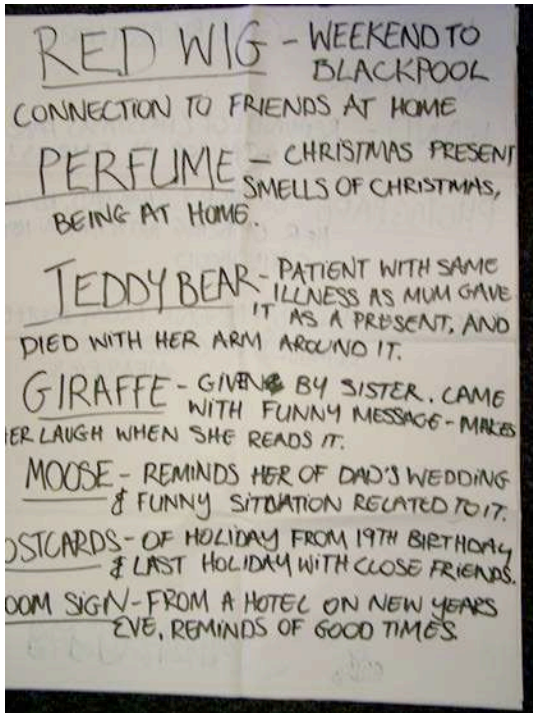 RED WIG - WEEKEND TO
BLACKPOOL
CONNECTION TO FRIENDS AT HOME
PERFUME - CHRISTMAS PRESENT
SMELLS OF CHRISTMAS,
BEING AT HOME.
TEDDY BEAR - PATIENT WITH SAME
ILLNESS AS MUM GAVE
IT AS A PRESENT, AND
DIED WITH HER ARM AROUND IT.
GIRAFFE - GIVEN BY SISTER. CAME
WITH FUNNY MESSAGE - MAKES
ER LAUGH WHEN SHE READS IT.
MOOSE - REMINDS HER OF DAD'S WEDDING
& FUNNY SITUATION RELATED TO IT.
OSTCARDS - OF HOLIDAY FROM 19TH BIRTHDAY
& LAST HOLIDAY WITH CLOSE FRIENDS.
OOM SIGN - FROM A HOTEL ON NEW YEARS
EVE, REMINDS OF GOOD TIMES.